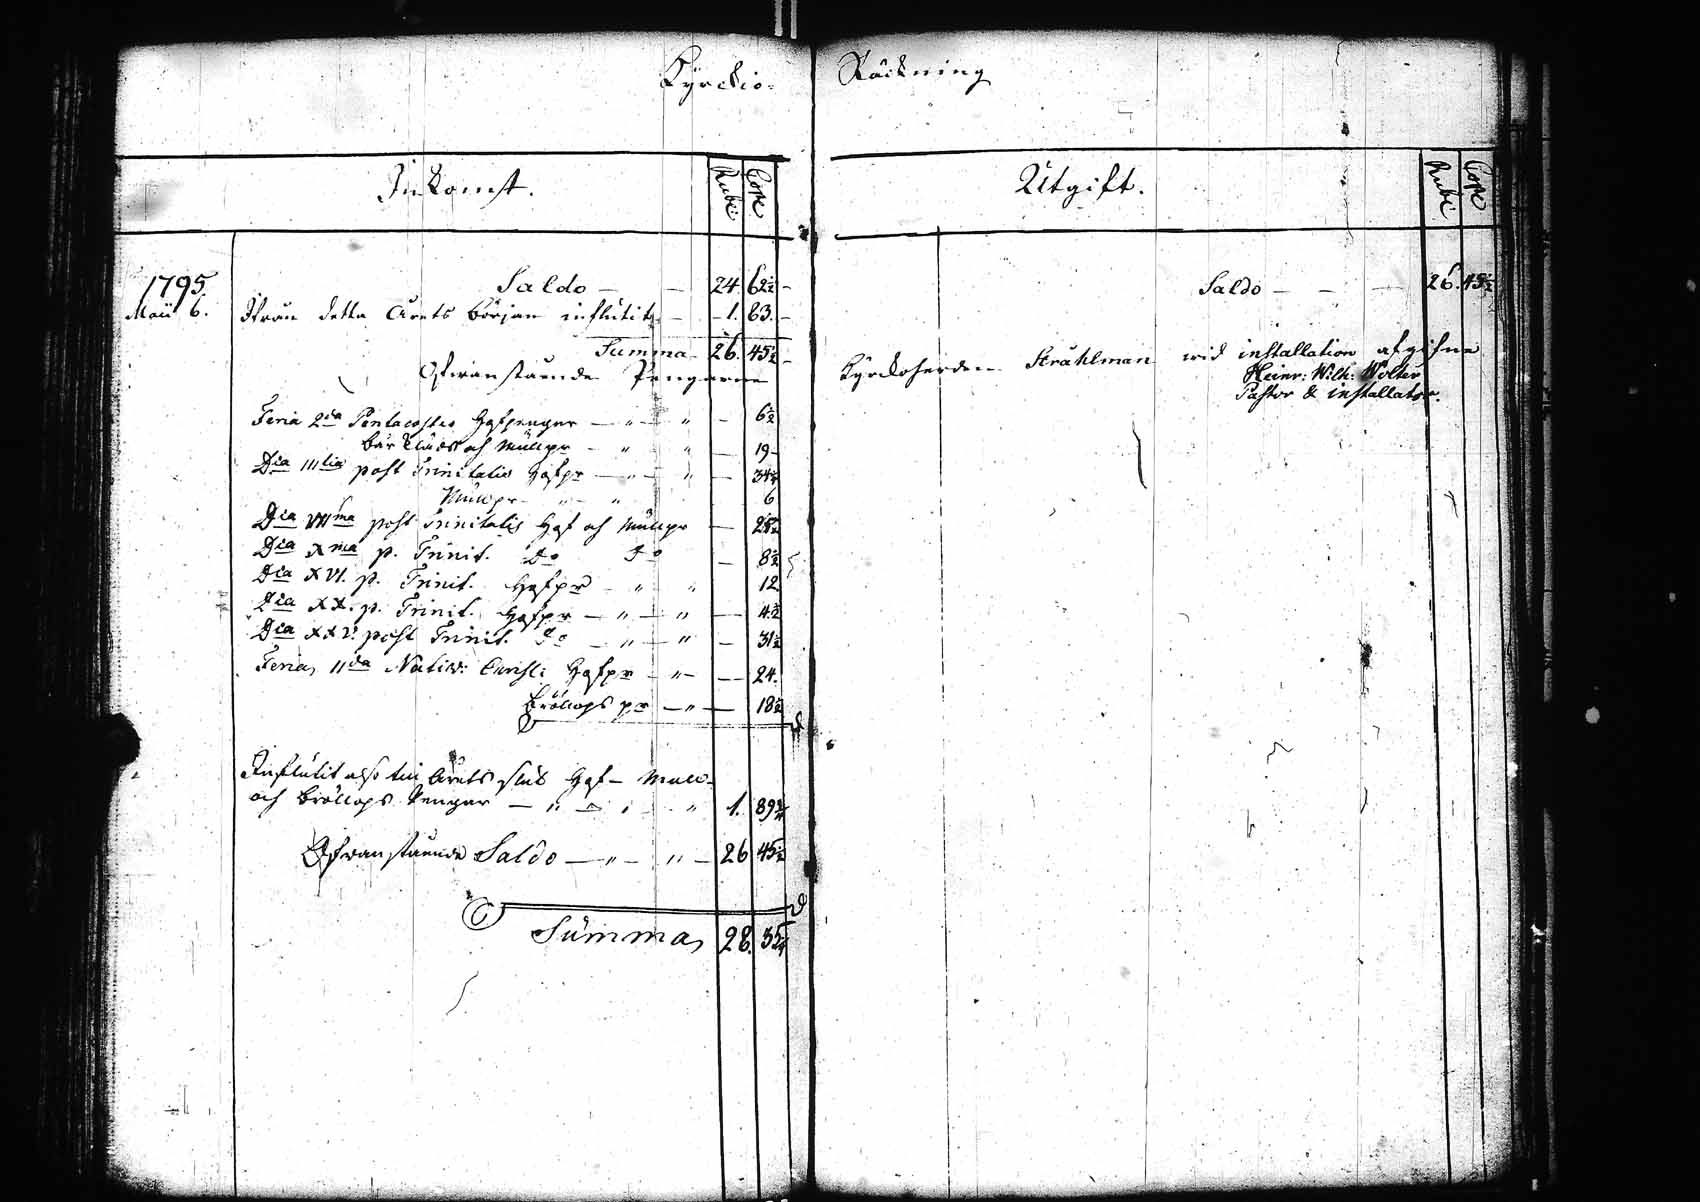 Kyrckio-
Räckning
Inkomst.
Rubl:
Cope
1795. Saldo — — 24. 62½
Maii 6. Ifrån detta Årets början influtit — 1. 83.
Summa 26. 45½
Ofvanstående Pengarne
Feria 2da Pentacostes Hafpengar — " — " — 6½
bårkläds och Mullpr — " " — 19
Dca IIItia post Trinitatis Hafpr — " — " — 34¼
Mullpr — " — " 6
Dca VIIma post Trinitatis Haf och Mullpr — 25½
Dca Xma p. Trinit. Do Do — 8½
Dca XVI. p. Trinit. Hafpr — " " 12
Dca XX. p. Trinit. Hafpr — " — " — 4½
Dca XXV. post Trinit. Do — " — " — 31½
Feria IIda Nativ: Christi Hafpr — " — 24.
Bröllops pr — " — 18½
Influtit also till Årets slut Haf- Mull-
och Bröllops Pengar — " — " " 1. 89¾
Ofvanstående Saldo — " — " — 26 45½
Summa 28. 35¼
Utgift.
Rubl:
Cope
Saldo — — 26. 45½
Kyrckoherden Stråhlman vid installation afgifne
Heinr: Wilh: Wolter
Pastor & installator.